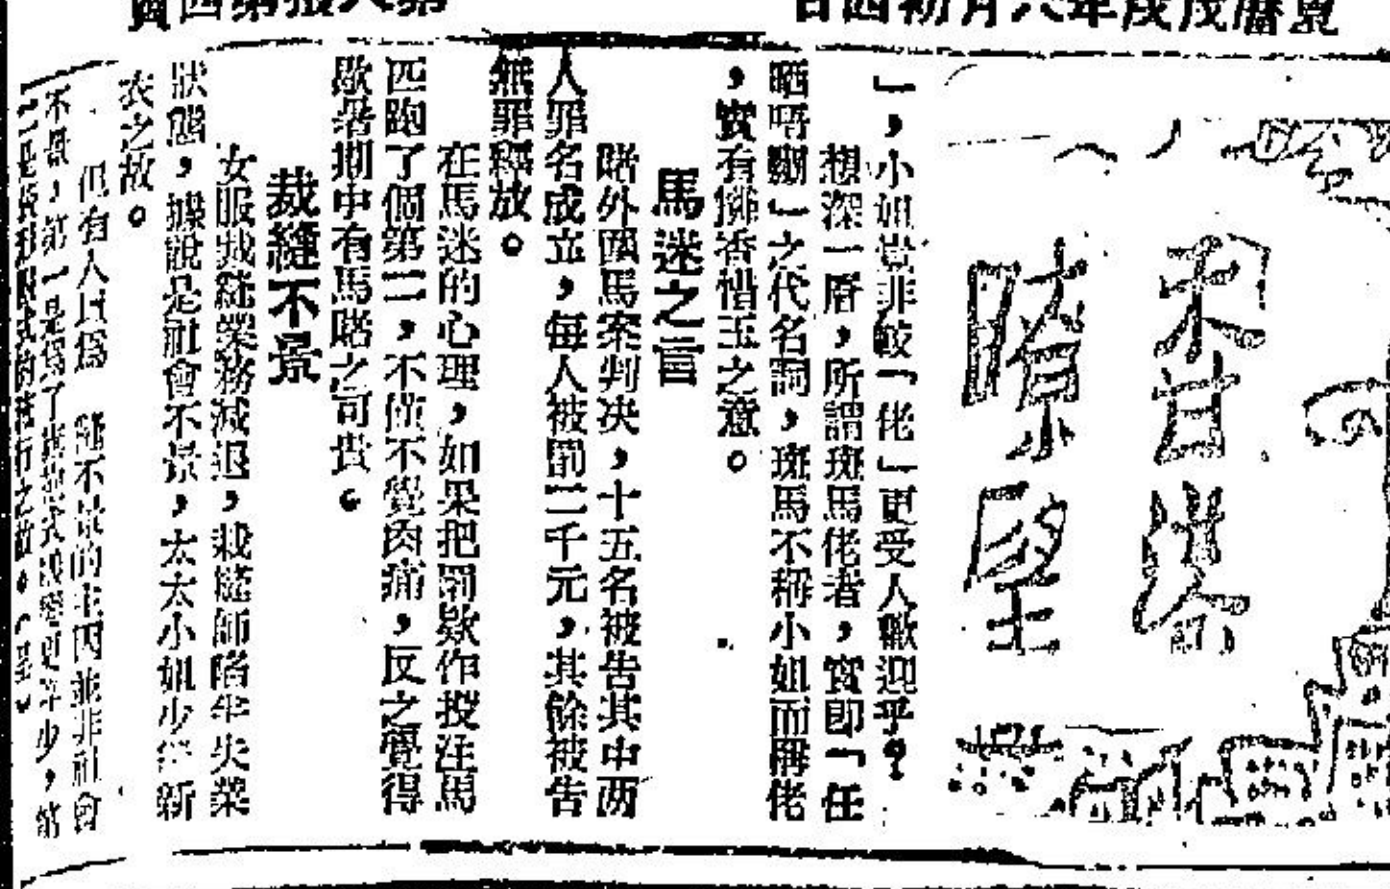 夏曆戊戌年八月初四日
第八張第四頁
」，小姐豈非較「佬」更受人歡迎乎？
想深一層，所謂斑馬佬者，實即「任
晒唔嬲」之代名詞，斑馬不稱小姐而稱佬
，實有憐香惜玉之意。
馬迷之言
賭外圍馬案判決，十五名被告其中两
人罪名成立，每人被罰二千元，其餘被告
無罪釋放。
在馬迷的心理，如果把罰欵作投注馬
匹跑了個第二，不僅不覺肉痛，反之覺得
歇暑期中有馬賭之可貴。
裁縫不景
女服裁縫業務減退，裁縫師陷半失業
狀態，據說是社會不景，太太小姐少縫新
衣之故。
但有人以為 縫不景的主因並非社會
不景，第一是為了 式 變更年少，第
二是 的流行之故。